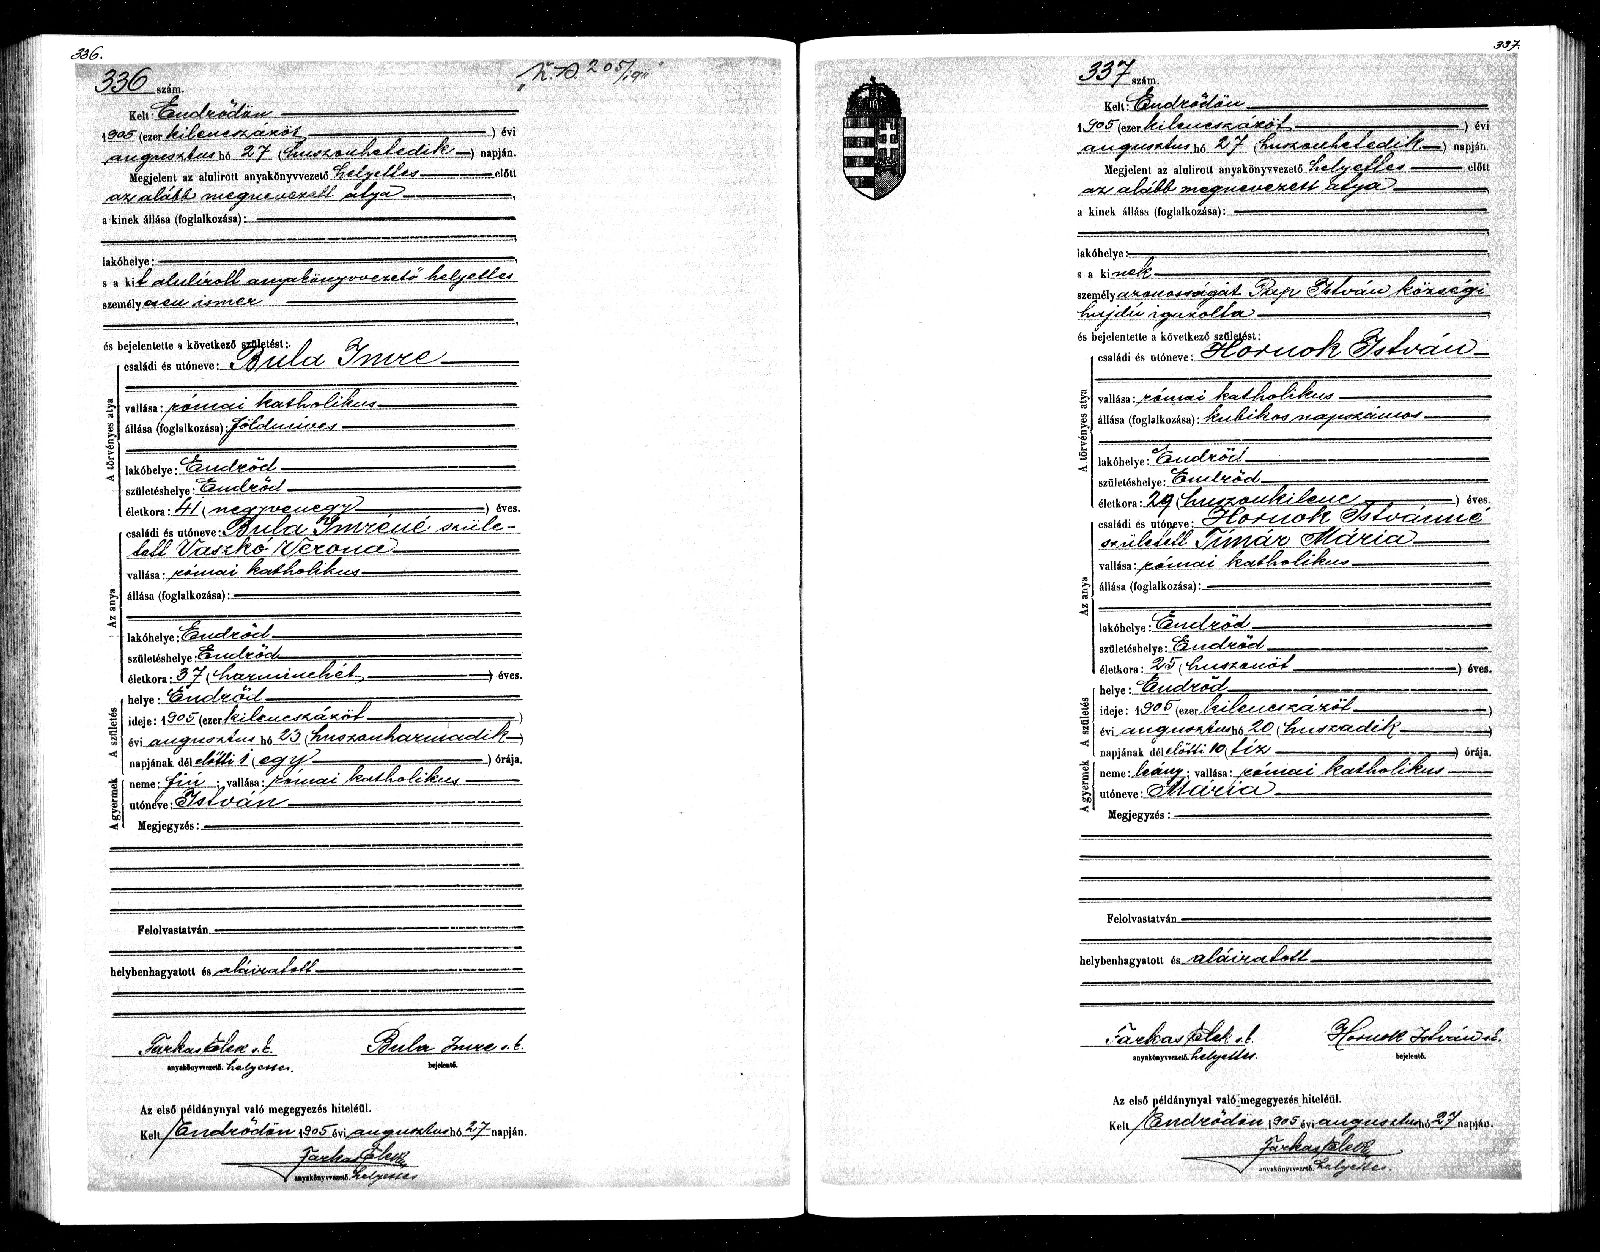 336.
336 szám.
Kelt: Endrődön
1905 (ezer kilencszázöt) évi
augusztus hó 27 (huszonhetedik) napján.
Megjelent az alulirott anyakönyvvezető helyettes előtt
az alább megnevezett atya,
a kinek állása (foglalkozása):
lakóhelye:
s a kit alulírott anyakönyvvezető helyettes
személyesen ismer
és bejelentette a következő születést:
A törvényes atya
családi és utóneve: Bula Imre
vallása: római katholikus
állása (foglalkozása): földmíves
lakóhelye: Endrőd
születéshelye: Endrőd
életkora: 41 (negyvenegy) éves.
Az anya
családi és utóneve: Bula Imréné szüle-
tett Vaszkó Verona
vallása: római katholikus
állása (foglalkozása):
lakóhelye: Endrőd
születéshelye: Endrőd
életkora: 37 (harminchét) éves.
A születés
helye: Endrőd
ideje: 1905 (ezer kilencszázöt)
évi augusztus hó 23 (huszonharmadik)
napjának dél előtti 1 (egy) órája.
A gyermek
neme: fiú; vallása: római katholikus
utóneve: István
Megjegyzés:
Felolvastatván
helybenhagyatott és aláíratott
Farkas Elek s.k. Bula Imre s.k.
anyakönyvvezető. helyettes. bejelentő.
Az első példánynyal való megegyezés hiteléül.
Kelt Endrődön 1905 évi augusztus hó 27 napján.
Farkas Elek
anyakönyvvezető. helyettes
337.
337 szám.
Kelt: Endrődön
1905 (ezer kilencszázöt) évi
augusztus hó 27 (huszonhetedik) napján.
Megjelent az alulirott anyakönyvvezető helyettes előtt
az alább megnevezett atya,
a kinek állása (foglalkozása):
lakóhelye:
s a kinek
személyazonosságát Pap István községi
hajdú igazolta
és bejelentette a következő születést:
A törvényes atya
családi és utóneve: Hornok István
vallása: római katholikus
állása (foglalkozása): kubikos napszámos
lakóhelye: Endrőd
születéshelye: Endrőd
életkora: 29 (huszonkilenc) éves.
Az anya
családi és utóneve: Hornok Istvánné
született Tímár Mária
vallása: római katholikus
állása (foglalkozása):
lakóhelye: Endrőd
születéshelye: Endrőd
életkora: 25 (huszonöt) éves.
A születés
helye: Endrőd
ideje: 1905 (ezer kilencszázöt)
évi augusztus hó 20 (huszadik)
napjának dél előtti 10 (tíz) órája.
A gyermek
neme: leány; vallása: római katholikus
utóneve: Mária
Megjegyzés:
Felolvastatván
helybenhagyatott és aláíratott
Farkas Elek s.k. Hornok István s.k.
anyakönyvvezető. helyettes. bejelentő.
Az első példánynyal való megegyezés hiteléül.
Kelt Endrődön 1905 évi augusztus hó 27 napján.
Farkas Elek
anyakönyvvezető. helyettes.